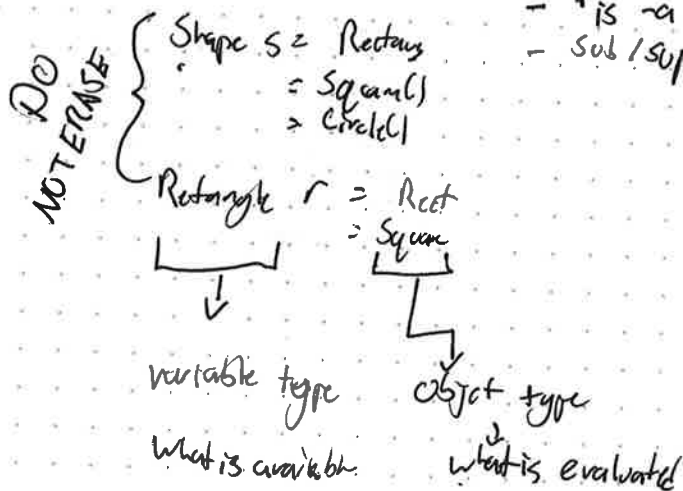 - "is-a
- sub/sup
DO
NOT ERASE
Shape s = Rectang
= Square()
= Circle()
Rectangle r = Rect
= Square
variable type
object type
what is available
what is evaluated